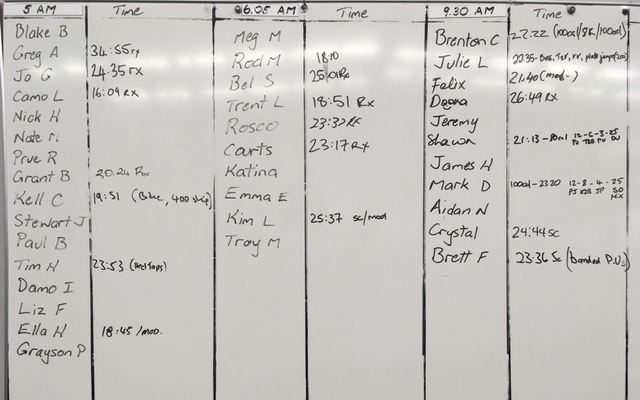 5 AM Time
Blake B
Greg A 34:55 rx
Jo G 24.35 rx
Camo L 16:09 RX
Nick H
Nate
Prue R
Grant B 20.24 Rx
Kell C 19:51 (Blue, 400 skip)
Stewart J
Paul B
Tim H 23:53
Damo I
Liz F
Ella H 18:45 /mod.
Grayson P
6.05 AM Time
Meg M
Rod M 18:10
Bel S 25:01 Rx
Trent L 18:51 Rx
Rosco 23:32 Rx
Courts 23:17 Rx
Katina
Emma E
Kim L 25:37 sc/mod
Troy M
9.30 AM Time
Brenton C 22:22
Julie L 22:35-
Felix 21:40 (mod-)
Deana 26:49 RX
Jeremy
Shawn 21:13 - 12-6-3-25
James H
Mark D 100cal-2320 12-8-4-25
Aidan N
Crystal 24:44 sc
Brett F 23:36 Sc (banded P.Us)